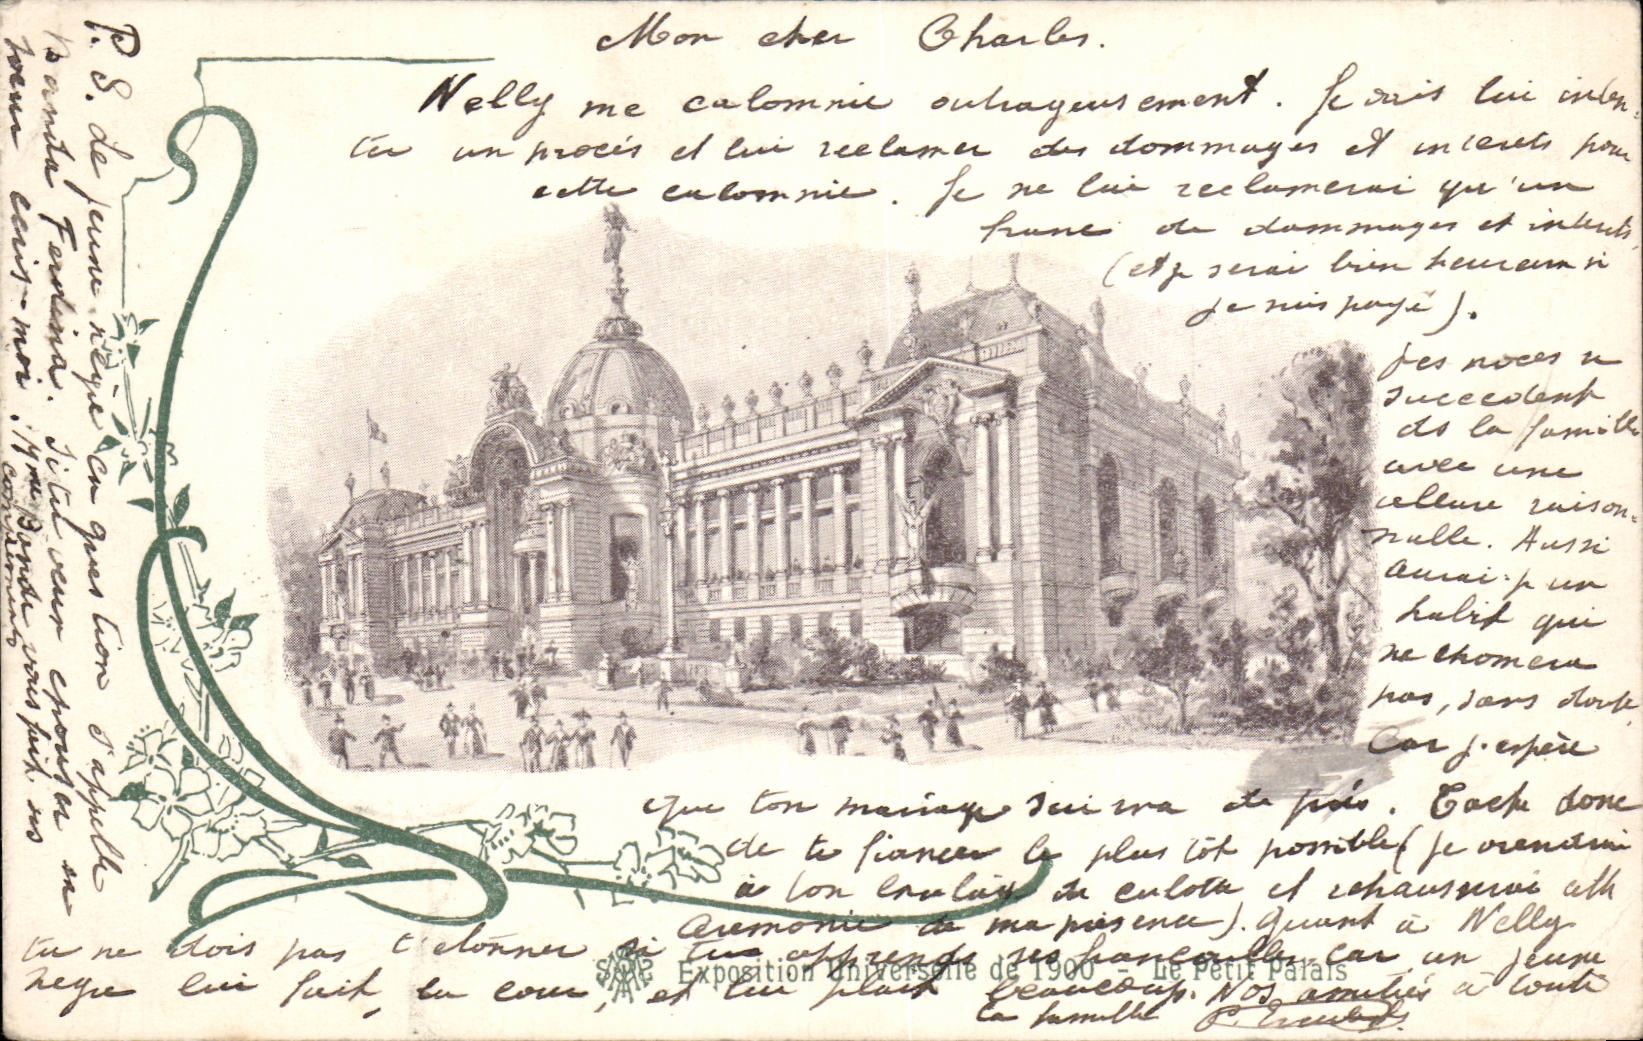 Mon cher Charles.
Nelly me calomnie outrageusement. Je vais lui inten-
ter un procès et lui reclamer des dommages et interets pour
cette calomnie. Je ne lui reclamerai qu'un
franc de dommages et interets,
(et je serai bien heureux si
je suis payé).
Les noces se
succedent
ds la famille
avec une
allure raison-
nable. Aussi
aurai-je un
habit qui
ne chomera
pas, sans doute,
Car j'espère
que ton mariage suivra de près. Tache donc
de te fiancer le plus tôt possible (je viendrai
à ton en culotte et rehausserai cette
ceremonie de ma présence). Quant à Nelly
tu ne dois pas t'etonner si tu apprends ses fiancailles car un jeune
negre lui fait la cour, et lui plait beaucoup. Nos amitiés à toute
la famille
Exposition Universelle de 1900 - Le Petit Palais
P.S. Le jeune nègre en question s'appelle
Ferdina. Si tu veux epouser sa
soeur ecris-moi. Mme vous fait ses